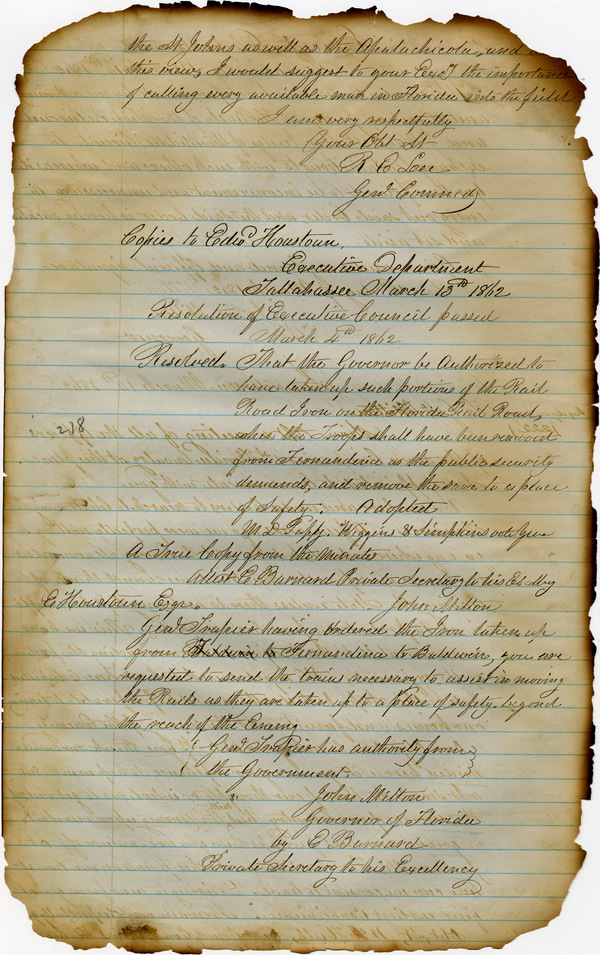 the St Johns as well as the Apalachicola, and
this view, I would suggest to your Excy the importance
of calling every available man in Florida into the field
I am very respectfully
Your Obt St
R E Lee
Genl Commdg
Copies to Edwd Houstoun.
Executive Department
Tallahassee March 13th 1862
Resolution of Executive Council passed
March 4th 1862
Resolved. That the Governor be Authorized to
have taken up such portions of the Rail
Road Iron on the Florida Rail Road,
218
when the Troops shall have been removed
from Fernandina as the public security
demands, and remove the same to a place
of safety. Adopted
M D Papy, Wiggins & Simpkins vote Yea
A True Copy from the minutes
attest E Barnard Private Secretary to his
John Milton
E Houstoun Esqr
Genl Trapier having ordered the Iron taken up
from Fernandina to Baldwin, you are
requested to send the trains necessary to assist in moving
the Rails as they are taken up to a place of safety, beyond
the reach of the Enemy
Genl Trapier has authority from
the Government.
John Milton
Governor of Florida
by E Barnard
Private Secretary to his Excellency